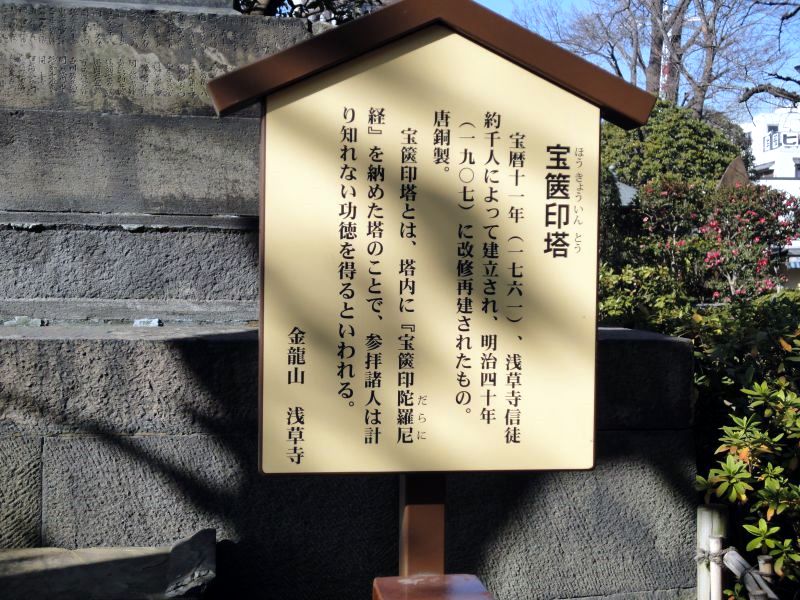 宝篋印塔
ほうきょういんとう
宝暦十一年（一七六一）、浅草寺信徒
約千人によって建立され、明治四十年
（一九〇七）に改修再建されたもの。
唐銅製。
宝篋印塔とは、塔内に『宝篋印陀羅尼
だらに
経』を納めた塔のことで、参拝諸人は計
り知れない功徳を得るといわれる。
金龍山 浅草寺